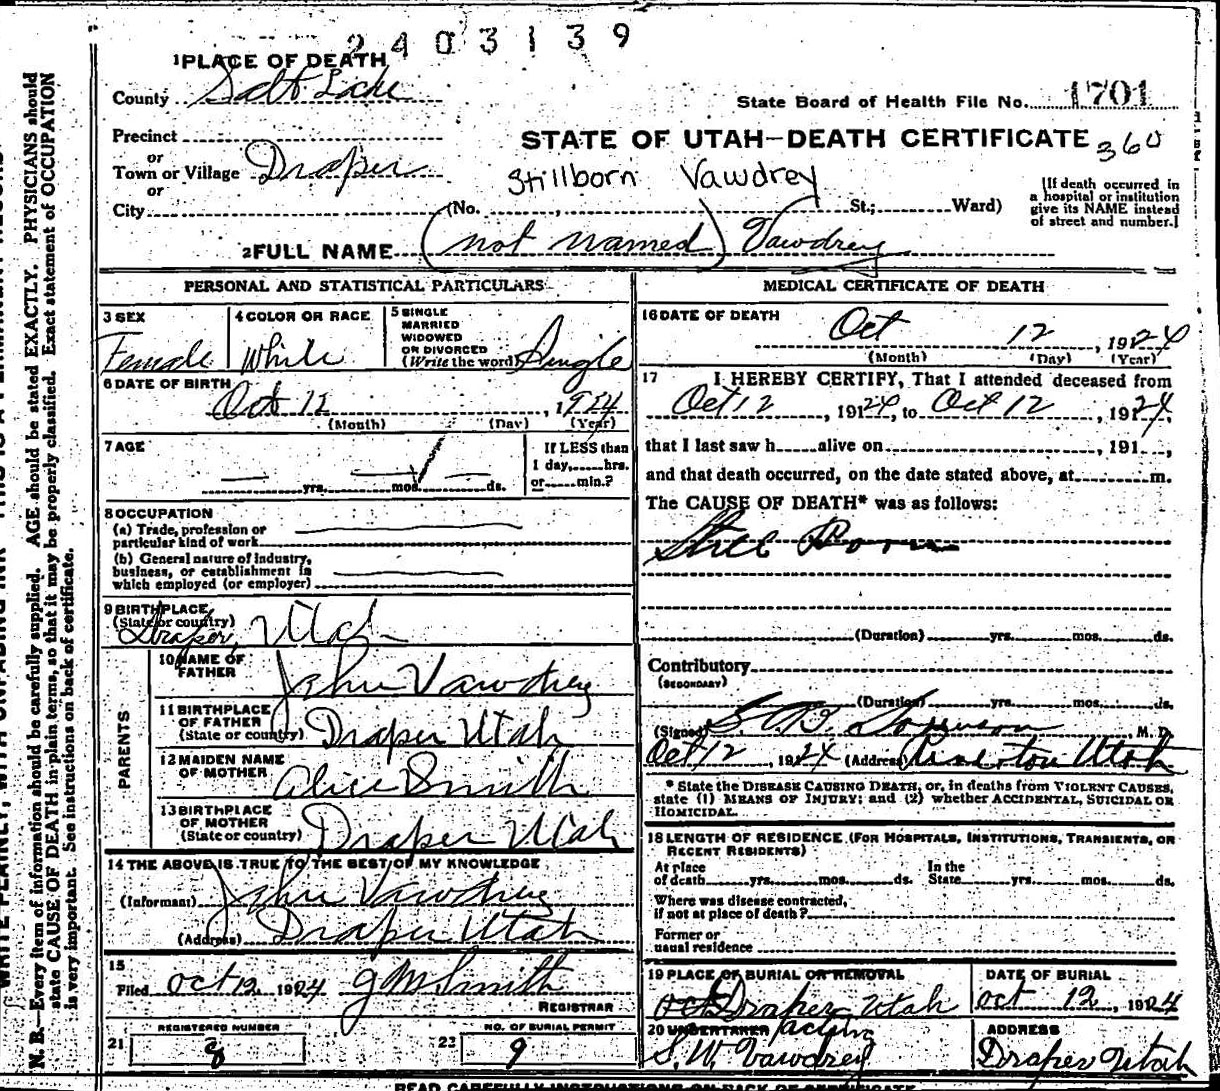 2403139
1 PLACE OF DEATH
County Salt Lake
State Board of Health File No. 1701
Precinct
STATE OF UTAH—DEATH CERTIFICATE 360
or
Town or Village Draper
Stillborn Vawdrey
or
City (No. , St.; Ward)
[If death occurred in
a hospital or institution
give its NAME instead
of street and number.]
2 FULL NAME (not named) Vawdrey
PERSONAL AND STATISTICAL PARTICULARS
3 SEX
Female
4 COLOR OR RACE
White
5 SINGLE
MARRIED
WIDOWED
OR DIVORCED
(Write the word) Single
6 DATE OF BIRTH
Oct 12, 1924
(Month) (Day) (Year)
7 AGE
If LESS than
1 day, hrs.
or min.?
yrs. mos. ds.
8 OCCUPATION
(a) Trade, profession or
particular kind of work
(b) General nature of industry,
business, or establishment in
which employed (or employer)
9 BIRTHPLACE
(State or country)
Draper, Utah
PARENTS
10 NAME OF
FATHER
John Vawdrey
11 BIRTHPLACE
OF FATHER
(State or country) Draper Utah
12 MAIDEN NAME
OF MOTHER
Alice Smith
13 BIRTHPLACE
OF MOTHER
(State or country) Draper Utah
14 THE ABOVE IS TRUE TO THE BEST OF MY KNOWLEDGE
(Informant) John Vawdrey
(Address) Draper Utah
15
Filed Oct 12, 1924 J M Smith
REGISTRAR
21 REGISTERED NUMBER
8
23 NO. OF BURIAL PERMIT
9
MEDICAL CERTIFICATE OF DEATH
16 DATE OF DEATH
Oct 12, 1924
(Month) (Day) (Year)
17 I HEREBY CERTIFY, That I attended deceased from
Oct 12, 19124, to Oct 12, 19124
that I last saw h alive on , 191 ,
and that death occurred, on the date stated above, at m.
The CAUSE OF DEATH* was as follows:
Still Born
(Duration) yrs. mos. ds.
Contributory
(SECONDARY)
(Duration) yrs. mos. ds.
(Signed) M. D.
Oct 12, 1924 (Address) Riverton Utah
* State the DISEASE CAUSING DEATH, or, in deaths from VIOLENT CAUSES,
state (1) MEANS OF INJURY; and (2) whether ACCIDENTAL, SUICIDAL OR
HOMICIDAL.
18 LENGTH OF RESIDENCE (FOR HOSPITALS, INSTITUTIONS, TRANSIENTS, OR
RECENT RESIDENTS)
At place
of death yrs. mos. ds.
In the
State yrs. mos. ds.
Where was disease contracted,
if not at place of death?
Former or
usual residence
19 PLACE OF BURIAL OR REMOVAL
Draper Utah
DATE OF BURIAL
Oct 12, 1924
20 UNDERTAKER acting
S. W. Vawdrey
ADDRESS
Draper Utah
READ CAREFULLY INSTRUCTIONS ON BACK OF CERTIFICATE
N. B.—Every item of information should be carefully supplied. AGE should be stated EXACTLY. PHYSICIANS should
state CAUSE OF DEATH in plain terms, so that it may be properly classified. Exact statement of OCCUPATION
is very important. See instructions on back of certificate.